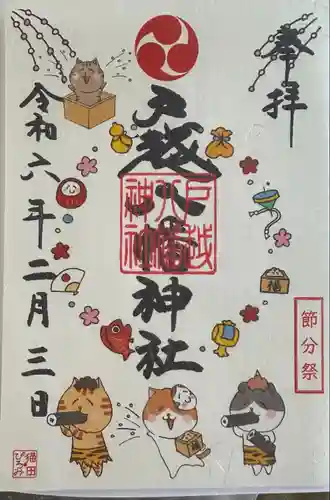 奉拝
戸越八幡神社
戸越
八幡
神社
節分祭
福
令和六年二月三日
猫田
ぴろみ